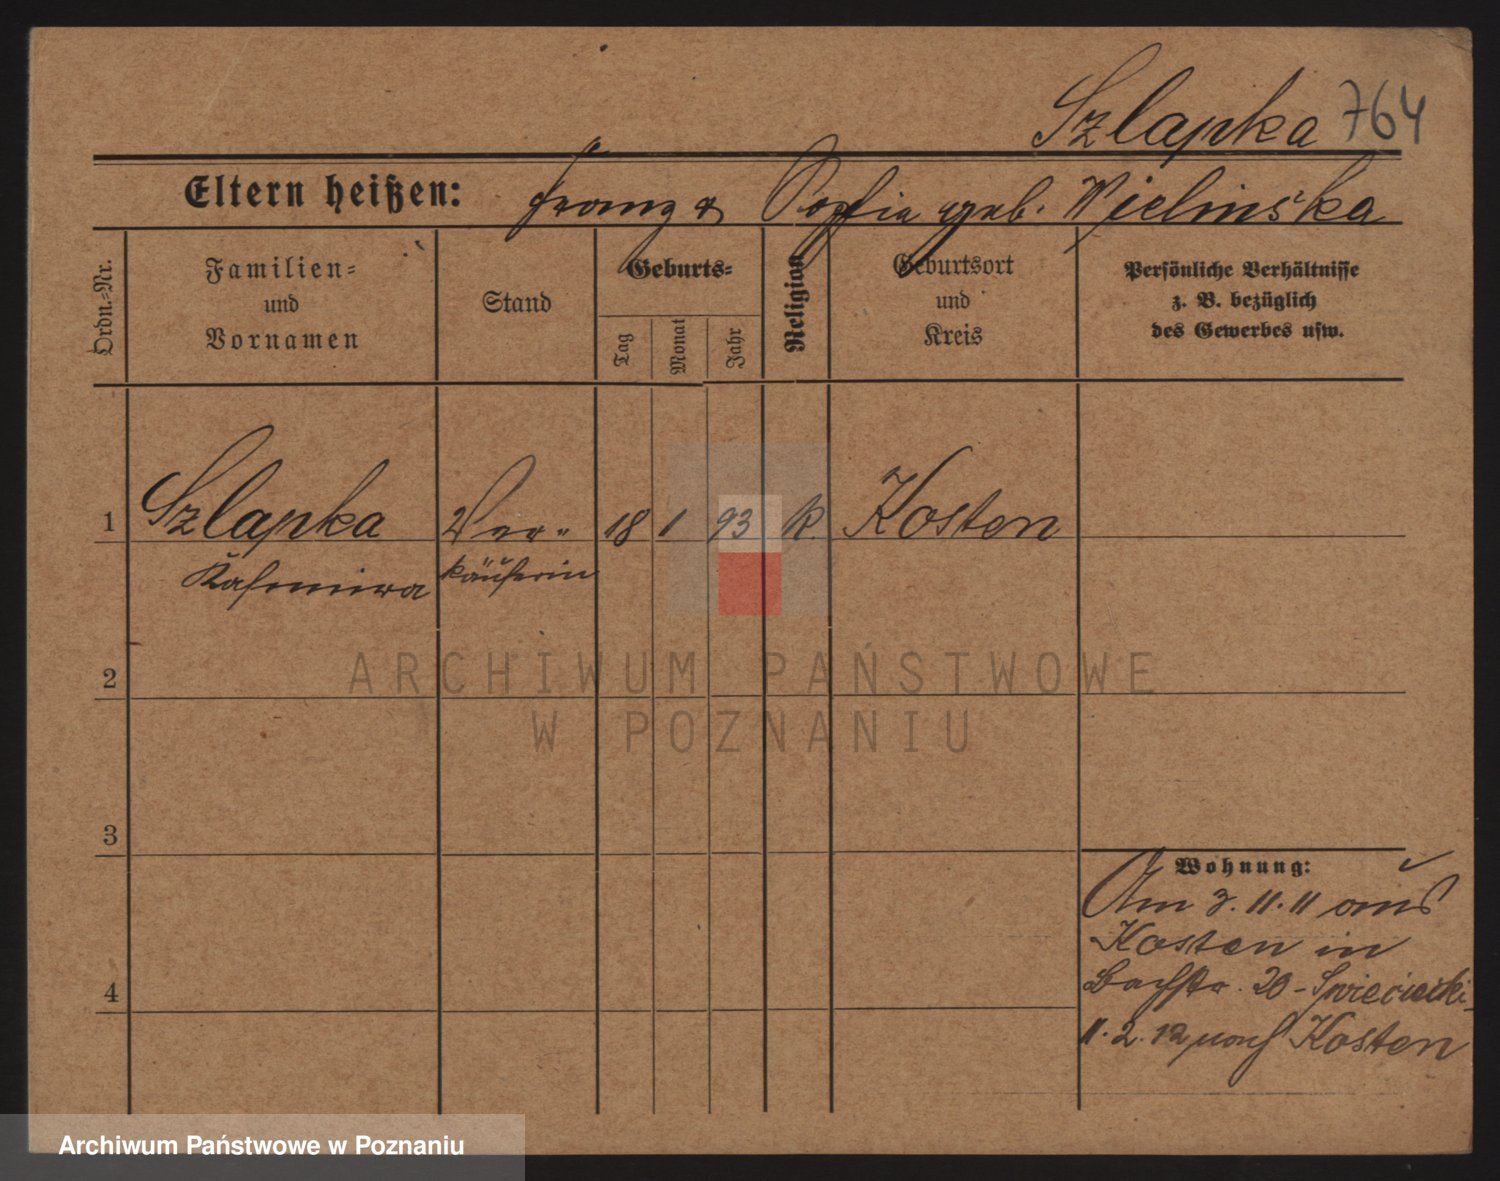 Szlapka 764
Eltern heißen: Franz & Sophia geb. Wielińska
Ordn.=Nr.
Familien=
und
Vornamen
Stand
Geburts=
Tag
Monat
Jahr
Religion
Geburtsort
und
Kreis
Persönliche Verhältnisse
z. B. bezüglich
des Gewerbes usw.
1 Szlapka Ver= 18 1 93 k. Kosten
Kasimira käuferin
2
3
4
Wohnung:
Am 3.11.11 aus
Kosten in
Bachstr. 20 - Swiecicki
11.2.12 nach Kosten
ARCHIWUM PAŃSTWOWE
W POZNANIU
Archiwum Państwowe w Poznaniu